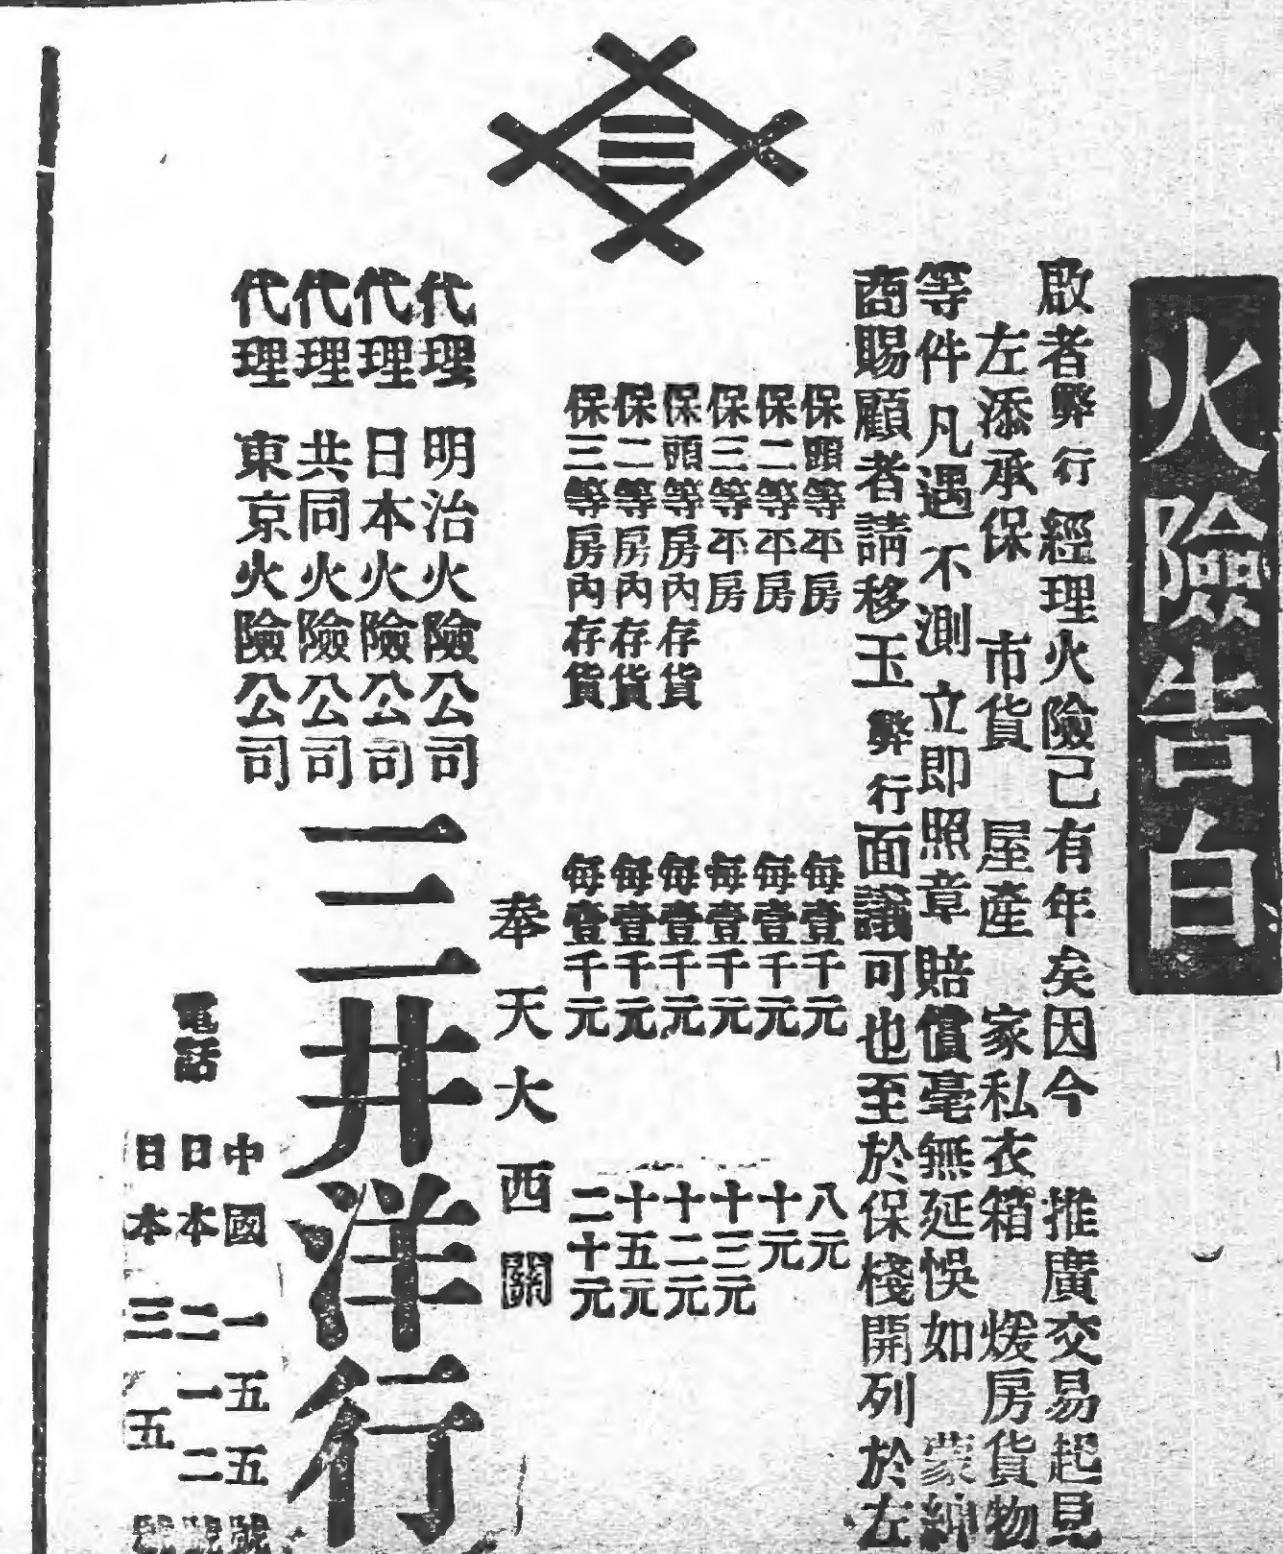 火險告白
啟者弊行經理火險已有年矣因今 推廣交易起見
左添承保 市貨 屋產 家私衣箱 煖房貨物
等件凡遇不測立即照章賠償毫無延悞如 蒙紳
商賜顧者請移玉弊行面議可也至於保棧開列於左
保頭等平房 每壹千元 八元
保二等平房 每壹千元 十元
保三等平房 每壹千元 十三元
保頭等房內存貨 每壹千元 十二元
保二等房內存貨 每壹千元 十五元
保三等房內存貨 每壹千元 二十元
奉天大西關
代理 明治火險公司
代理 日本火險公司
代理 共同火險公司
代理 東京火險公司
三井洋行
電話
中國 一五五號
日本 二一二號
日本 三五號